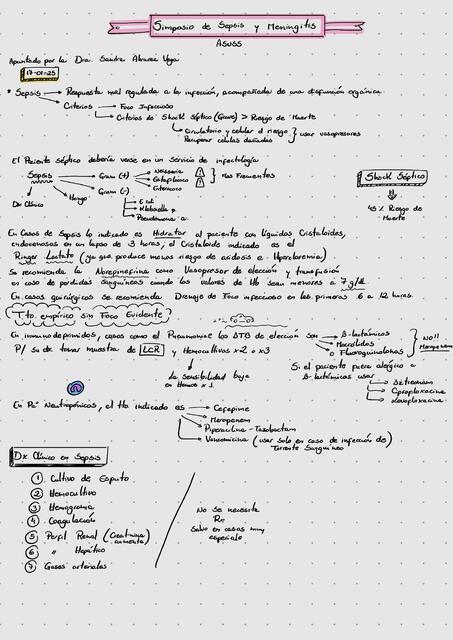 Simposio de Sepsis y Meningitis
Asuss
Apuntado por la Dra. Sandra Alvarez Vega
17-01-25
* Sepsis → Respuesta mal regulada a la infección, acompañada de una disfunción orgánica.
→ Criterios → Foco Infeccioso
→ Criterios de Shock Séptico (Grave) > Riesgo de Muerte
→ Circulatorio y celular d riesgo
Recuperar células dañadas } usar vasopresores
El Paciente séptico debería verse en un servicio de infectología
Sepsis → Gram (+) → Neisseria
→ Estafilococo
→ Enterococo } Mas Frecuentes
→ Gram (-) → E. coli
→ Klebsiella p.
→ Pseudomona a.
Dx Clínico
Hongo
Shock Séptico
45 % Riesgo de Muerte
En Casos de Sepsis lo indicado es Hidratar al paciente con líquidos Cristaloides,
endovenosos en un lapso de 3 horas, el Cristaloide indicado es el
Ringer Lactato (ya que produce menos riesgo de acidosis e Hipercloremia).
Se recomienda la Norepinefrina como Vasopresor de elección y transfusión
en caso de perdidas Sanguíneas cuando los valores de Hb sean menores a 7 g/dl.
En casos quirúrgicos se recomienda Drenaje de Foco infeccioso en las primeras 6 a 12 horas.
Tto. empírico sin Foco Evidente
En inmunodeprimidos, casos como el Pneumoniae los ATB de elección son → β-lactámicos
→ Macrólidos
o Fluoroquinolonas } No!! Meropenem
P/ Su dx tomar muestra de LCR y Hemocultivos x2 o x3
La sensibilidad baja
en Hemos x 1.
Si el paciente fuera alérgico a
β-lactámicos usar → Aztreonam
→ Ciprofloxacina
→ Levofloxacina
En Px Neutropénicos, el tto indicado es → Cefepime
→ Meropenem
→ Piperacilina - Tazobactam
→ Vancomicina (usar solo en caso de infección de
Torrente Sanguíneo)
Dx. Clínico en Sepsis
1 Cultivo de Esputo
2 Hemocultivo
3 Hemograma
4 Coagulación
5 Perfil Renal (Creatinina aumenta)
6 " Hepático
7 Gases arteriales
No se necesita
Rx
Salvo en casos muy
especiales